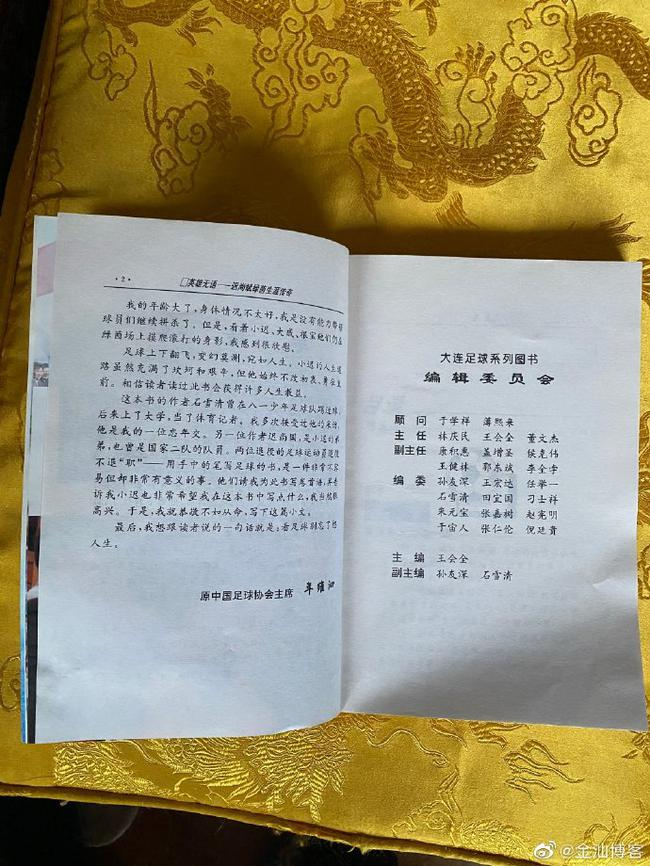 ·2·
□英雄无语——迟尚斌绿茵生涯传奇
我的年龄大了，身体情况不太好，我是没有能力带领
球员们继续拼杀了。但是，看着小迟、大戚、根宝他们仍在
绿茵场上摸爬滚打的身影，我感到很欣慰。
足球上下翻飞，变幻莫测，宛如人生。小迟的人生道
路虽然充满了坎坷和艰辛，但他始终不改初衷，勇往直
前。相信读者读过此书会获得许多人生教益。
这本书的作者石雪清曾在八一少年足球队踢过球，
后来上了大学，当了体育记者。我多次接受过他的采访，
他是我的一位忘年交。另一位作者迟尚国，是小迟的弟
弟，也曾是国家二队的队员。两位退役的足球运动员退役
不退“职”——用手中的笔写足球的书，是一件非常不容
易但却非常有意义的事。他们请我为此书写卷首语，并告
诉我小迟也非常希望我在这本书中写点什么，我当然很
高兴。于是，我就恭敬不如从命，写下这篇小文。
最后，我想跟读者说的一句话就是：看足球别忘了悟
人生。
原中国足球协会主席 年维泗
大连足球系列图书
编辑委员会
顾问 于学祥 薄熙来
主任 林庆民 王会全 董文杰
副主任 康积惠 盖增圣 侯竟伟
王健林 郭东斌 李全学
编委 孙友深 王宏达 任举一
石雪清 田宝国 刁士祥
朱元宝 张嘉树 赵宪明
于宙人 张仁伦 倪廷贵
主编 王会全
副主编 孙友深 石雪清
@金汕博客